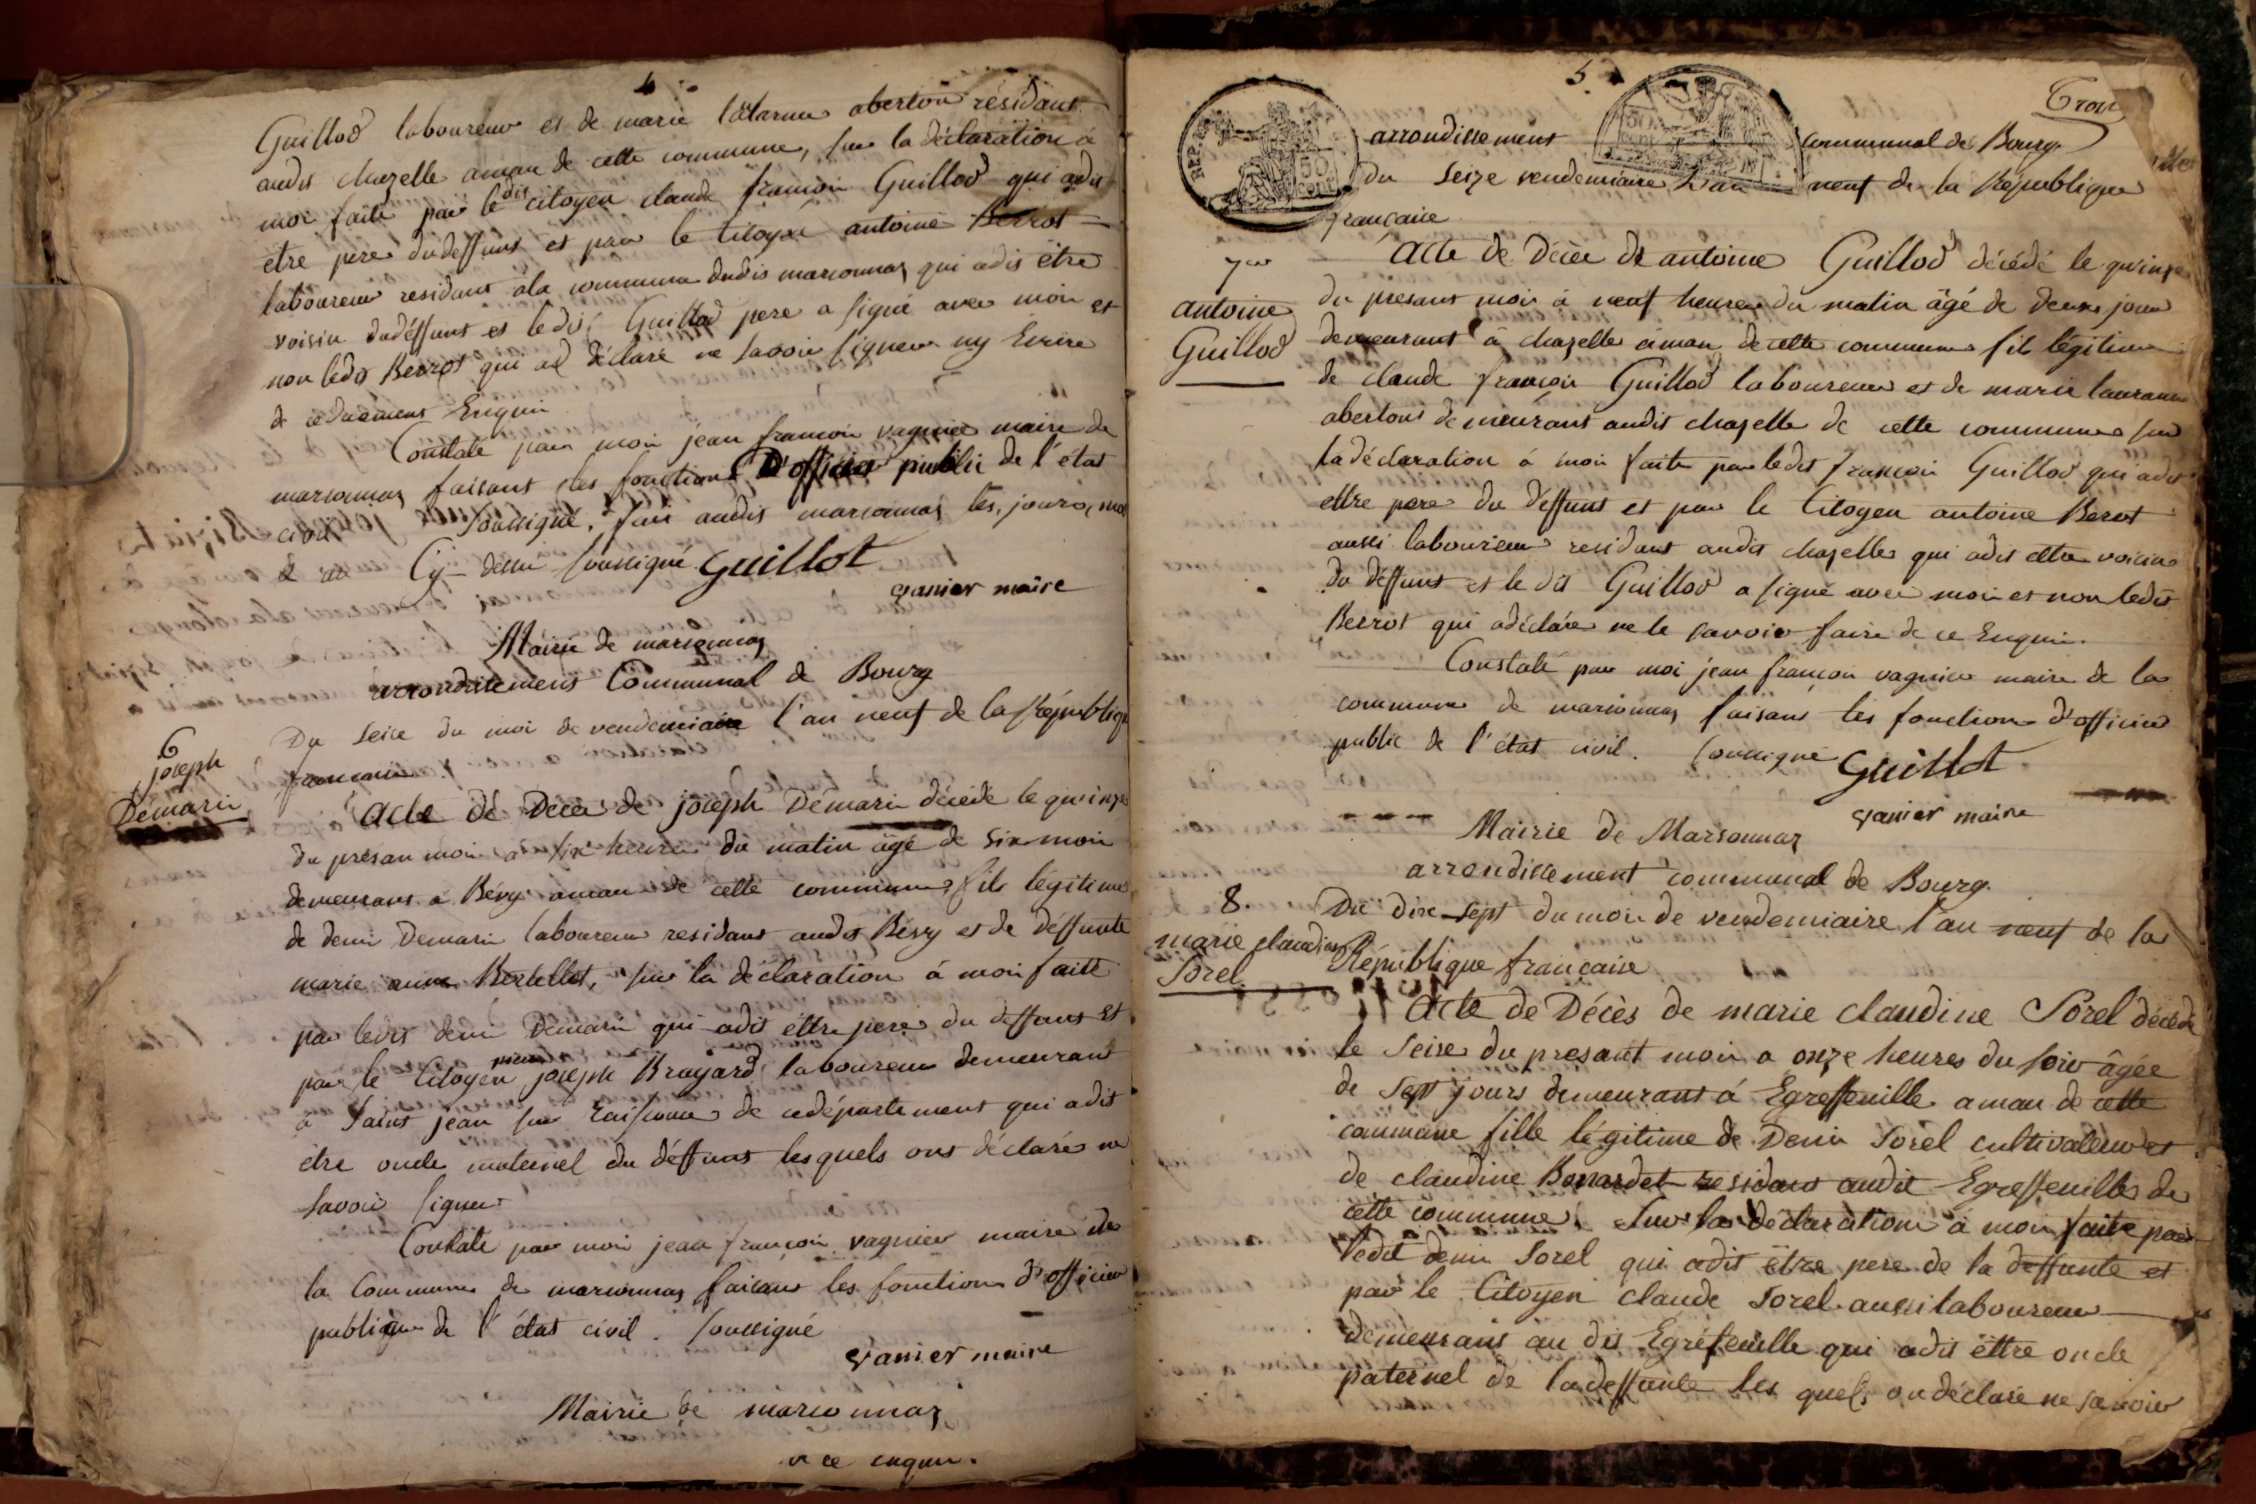 4
Guillod laboureur et de marie abertoux résidant
audit chazelle aman de cette commune, sur la déclaration à
moi faite par ledit citoyen claude françois Guillod qui adit
etre pere dudeffunt et par le Citoyen antoine Berrot
laboureur residant ala commune dudit marsonnaz qui adit être
voisin dudéffunt et ledit Guillod pere a signé avec moi et
non ledit Berrot qui a déclaré ne savoir signer ny Ecrire
de ce duement Enquis
Constaté par moi jean françois vagnier maire de
marsonnaz faisant les fonctions D'officier public de l'état
civil soussigné, fait audit marsonnaz les jours, moi
& an Cy-dessu soussigné Guillot
vanier maire
Mairie de marsonnaz
arrondissement Communal de Bourg
6
joseph
Démarie
Du seise du moi de vendemiaire l'an neuf de la Républiq
française
acte de Décès de joseph Démarie décédé le quinze
du présan moi a six heures du matin âgé de six moi
demeurant a Bévy aman de cette commune, fils légitime
de deni Demarie laboureur residant audit Bévy et de déffunte
marie anne Bertellet, sur la déclaration à moi faitte
par ledit deni Demarie qui adit ettre pere du deffunt et
par le Citoyen pierre joseph Brayard laboureur demeurant
a Saint jean sur de cedépartement qui adit
etre oncle maternel du déffunt lesquels ont déclaré ne
savoir signer
Constaté par moi jean françois vagnier maire de
la Commune de marsonnaz faisant les fonctions d'officier
publique de l'état civil. soussigné
vanier maire
Mairie de marsonnaz
de ce enquis.
5
Trois
REP. FRA
50
CENT
arrondissement communal de Bourg
du seize vendemiaire L'an neuf de la République
française
7
antoine
Guillod
Acte de Décès de antoine Guillod décédé le quinze
du présant moi à neuf heures du matin âgé de deux jour
demeurant à chazelle aman de cette commune fils légitime
de claude françois Guillod laboureur et de marie
abertoux demeurant audit chazelle de cette commune sur
la déclaration à moi faite par ledit françois Guillod qui adit
ettre pere du deffunt et par le Citoyen antoine Berot
aussi laboureur residant audit chazelle qui adit ettre voisin
du déffunt et le dit Guillod a signé avec moi et non ledit
Berrot qui adéclaré ne le savoir faire de ce Enquis.
Constaté par moi jean françois vagnier maire de la
commune de marsonnaz faisant les fonctions d'officier
public de l'état civil. soussigné Guillot
vanier maire
Mairie de Marsonnaz
arrondissement communal de Bourg.
8.
marie claudine
Sorel
Du dix-sept du moi de vendemiaire l'an neuf de la
République française
Acte de Décès de marie claudine Sorel décédé
le seise du présant moi a onze heures du soir âgée
de sept jours demeurant à Egreffeuille aman de cette
commune fille légitime de Deni Sorel cultivateur et
de claudine Bonardet residant audit Egreffeuille de
cette commune. Sur la déclaration à moi faite par
ledit deni Sorel qui adit être pere de la deffunte et
par le Citoyen claude Sorel aussi laboureur
demeurant au dit Egrefeuille qui adit ëttre oncle
paternel de ladeffunte les quels on déclaré ne savoir